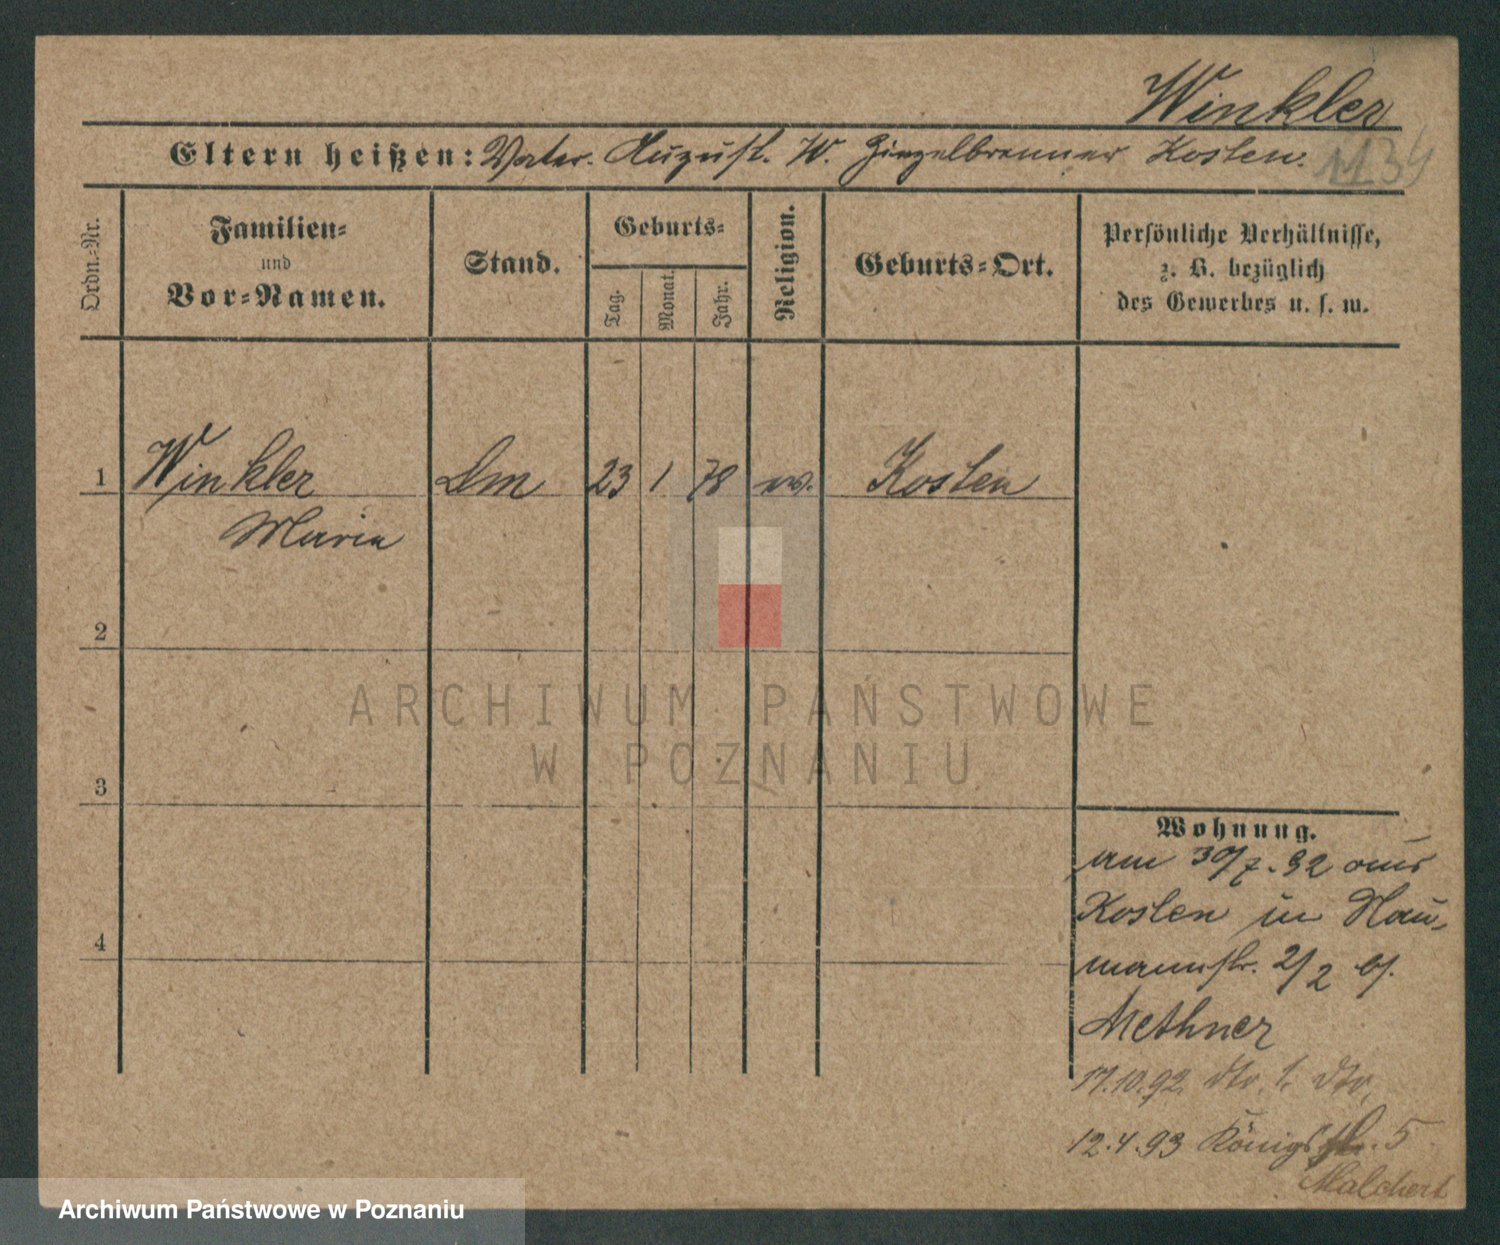 Winkler
Eltern heißen: Vater. August. W. Ziegelbrenner Kosten.
1134
Ordn.-Nr.
Familien-
und
Vor-Namen.
Stand.
Geburts-
Tag.
Monat.
Jahr.
Religion.
Geburts-Ort.
Persönliche Verhältnisse,
z. B. bezüglich
des Gewerbes u. s. w.
1 Winkler Dm 23 1 78 ev. Kosten
Maria
2
3
4
Wohnung.
am 30/7. 92 aus
Kosten in Nau-
mannstr. 2/2 b/.
Methner
17.10.92. dto. 1. dto.
12.4.93 Königstr. 5
Malchert
ARCHIWUM PAŃSTWOWE
W POZNANIU
Archiwum Państwowe w Poznaniu